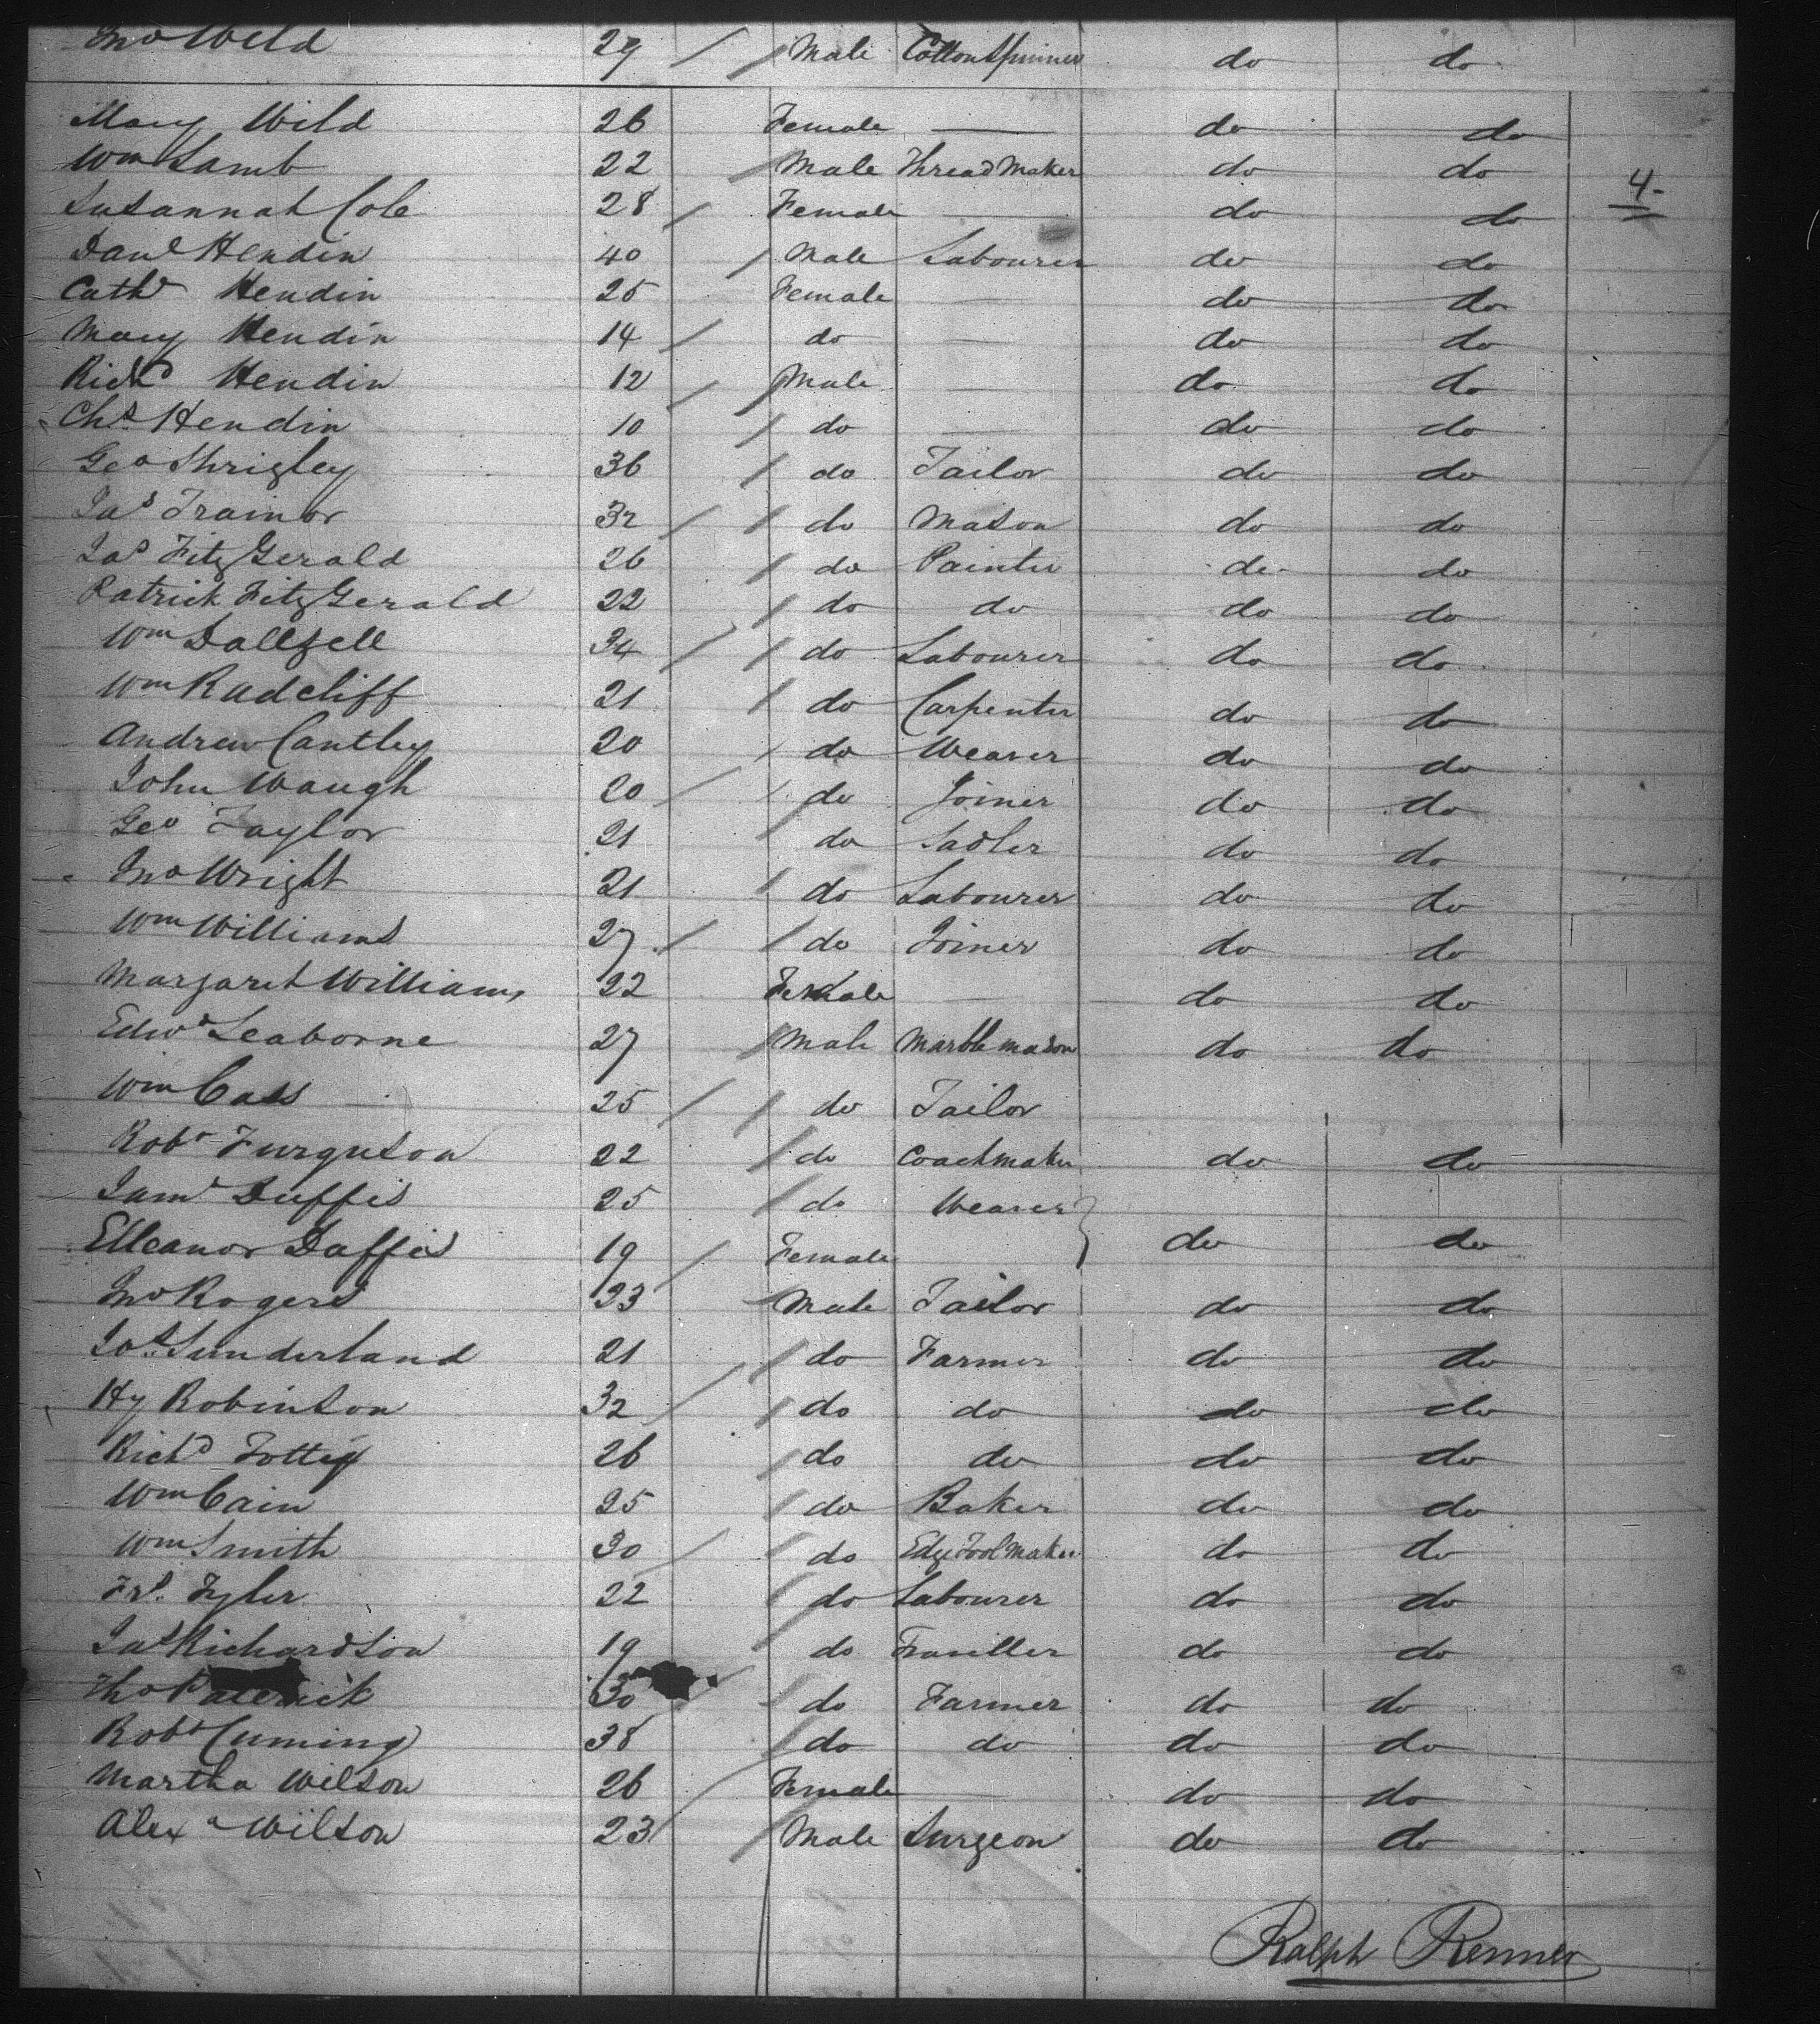 Jno Wild 29 Male Cotton Spinner do do
Mary Wild 26 Female — do do
Wm Lamb 22 Male Thread Maker do do
4-
Susannah Cole 28 Female — do do
Danl Hendin 40 Male Labourer do do
Cathe Hendin 25 Female — do do
Mary Hendin 14 do — do do
Richd Hendin 12 Male — do do
Chs Hendin 10 do — do do
Geo Shrigley 36 do Tailor do do
Jas Trainor 32 do Mason do do
Jas FitzGerald 26 do Painter do do
Patrick FitzGerald 22 do do do do
Wm Dallzell 34 do Labourer do do
Wm Radcliff 21 do Carpenter do do
Andrew Cantley 20 do Weaver do do
John Waugh 20 do Joiner do do
Geo Taylor 21 do Sadler do do
Jno Wright 21 do Labourer do do
Wm Williams 27 do Joiner do do
Margaret Williams 22 Female — do do
Edwd Seaborne 27 Male Marble mason do do
Wm Cass 25 do Tailor
Robt Furguson 22 do Coachmaker do do
Saml Duffis 25 do Weaver
Elleanor Daffis 19 Female do do
Jno Rogers 23 Male Tailor do do
Jos Sunderland 21 do Farmer do do
Hy Robinson 32 do do do do
Richd Tottey 26 do do do do
Wm Cain 25 do Baker do do
Wm Smith 30 do Edge Tool Maker do do
Frs Tyler 22 do Labourer do do
Jas Richardson 19 do do do
Tho 30 do Farmer do do
Robt Cuming 38 do do do do
Martha Wilson 26 Female — do do
Alexr Wilson 23 Male Surgeon do do
Ralph Renner